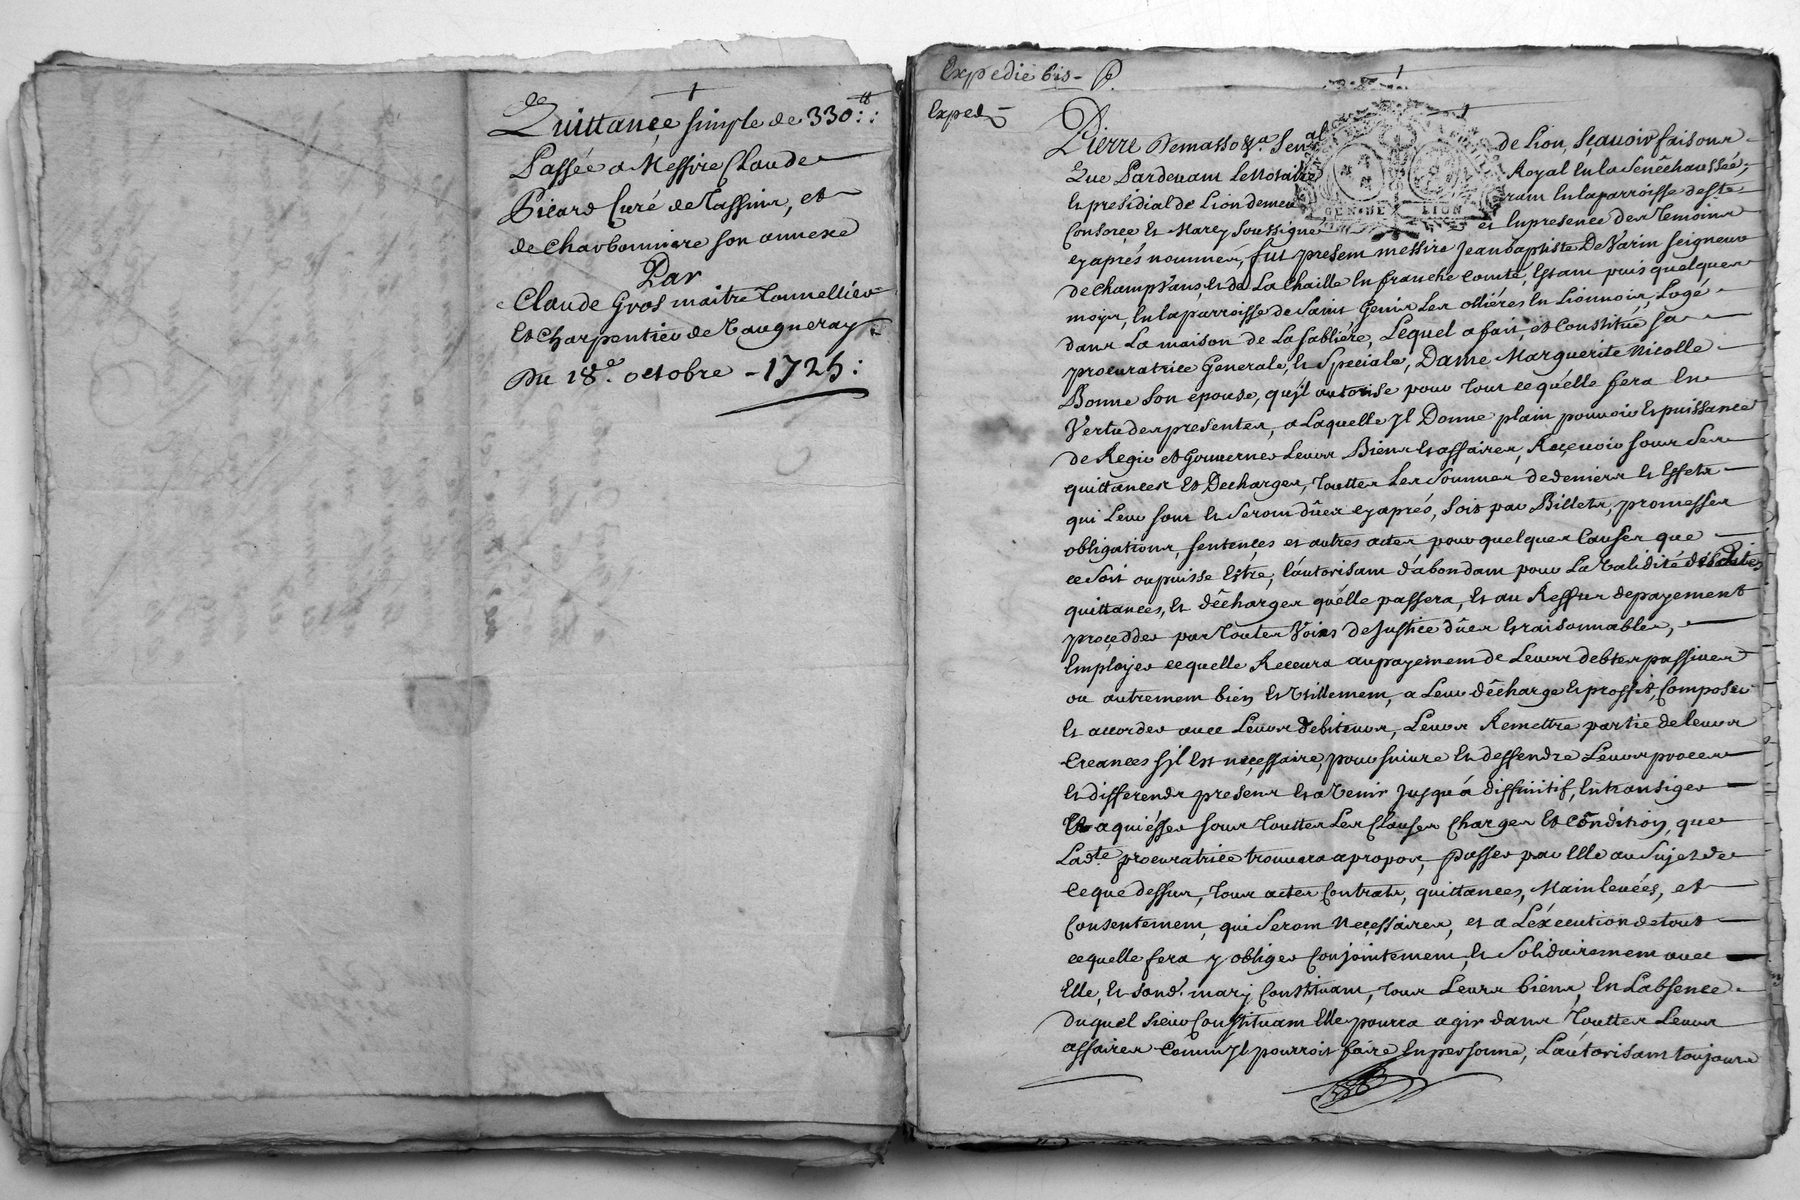 Quittance simple de 330 ₶ : :
Passée a Messire Claude
Picard Curé de Tassins, et
de Charbonniere son annexe
Par
Claude Gros maitre Tonnellier
Et Charpentier de Vaugneray
Du 18e. octobre - 1725 :
Expedié bis -
Exped
Pierre Demasso &a Senal de Lion, Sçauoir faisons
Que Pardeuant Le Notaire Royal En la Senêchaussée,
Et présidial de Lion demeu rant En la parroisse de Ste
Consorçe Et Marcy Soussigné et En presence des Temoins
cy aprés nommés, fut present messire Jean baptiste De Varin seigneur
de Champvans, et de La Chaille En franche comté, Estant puis quelques
mois, En la parroisse de Saint Genis Les ollieres En Lionnois, Logé
dans La maison de La Sabliére, Lequel a fait, et Constitué sa
procuratrice Generale, Et Speciale, Dame Marguerite Nicolle
Bonne Son épouse, qu'jl autorise pour Tout ce qu'élle fera En
Vertu des presentes, a Laquelle Jl Donne plain pouuoir Et puissance
de Regir et Gouuerner Leurs Biens Et affaires, Reçeuoir sous Ses
quittances Et Decharges, Touttes Les Sommes de deniers Et Effets
qui Leur sont Et Seront dûes cy aprés, Soit par Billets, promesses
obligations, sentençes et autres actes pour quelques Causes que
ce Soit ou puisse Estre, l'áutorisant d'abondant pour La Validité desdites
quittances, Et décharges qu'élle passera, Et au Reffus de payement
proçedder par Toutes Voies de Justice dûes Et raisonnables,
Employer ce quelle Receura au payement de Leurs debtes passiues
ou autrement bien Et Vtillement, a Leur décharge Et proffit, Composer
Et accorder auec Leurs debiteurs, Leurs Remettre partie de leurs
Creances s'jl Est neçessaire, poursuiure Et deffendre Leurs proces
Et differends presens Et a Venir Jusqu'á diffinitif, En transiger
Et aquiésser sous Touttes Les Clauses Charges Et Condition, que
Ladte. procuratrice trouuera a propos, passer par Elle au Sujet de
Ce que dessus, Tous actes Contrats, quittances, Mainleuées, et
Consentement, qui Seront Neçessaires, et a L'éxecution de tout
ce quelle fera y obliger Conjointement, Et Solidairement auec
Elle, Et sond. mary Constituant, Tous Leurs biens, En L'absence
duquel sieur Constituant Elle pourra agir dans Touttes Leurs
affaires Comme Jl pourroit faire En personne, L'autorisant toujours
GEN. DE LION